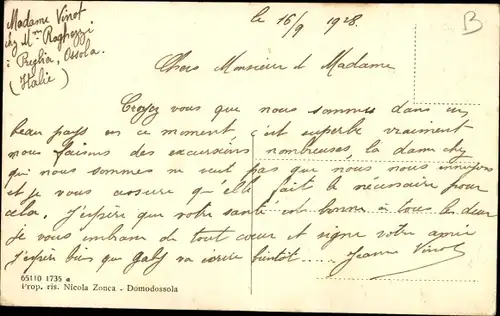 Madame Vinot
chez Mme Raghozzi
à Preglia, Ossola.
(Italie)
le 16/9 1928.
B
Chers Monsieur et Madame
Croyez vous que nous sommes dans un
beau pays en ce moment, c'est superbe vraiment
nous faisons des excursions nombreuses, la dame chez
qui nous sommes ne veut pas que nous nous ennuyons
et je vous assure qu'elle fait le nécessaire pour
cela. J'espère que votre santé est bonne à tous les deux
je vous embrasse de tout cœur et signe votre amie
j'espère bien que Gaby va écrire bientôt.... Jeanne Vinot
65110 1735 a
Prop. ris. Nicola Zonca - Domodossola